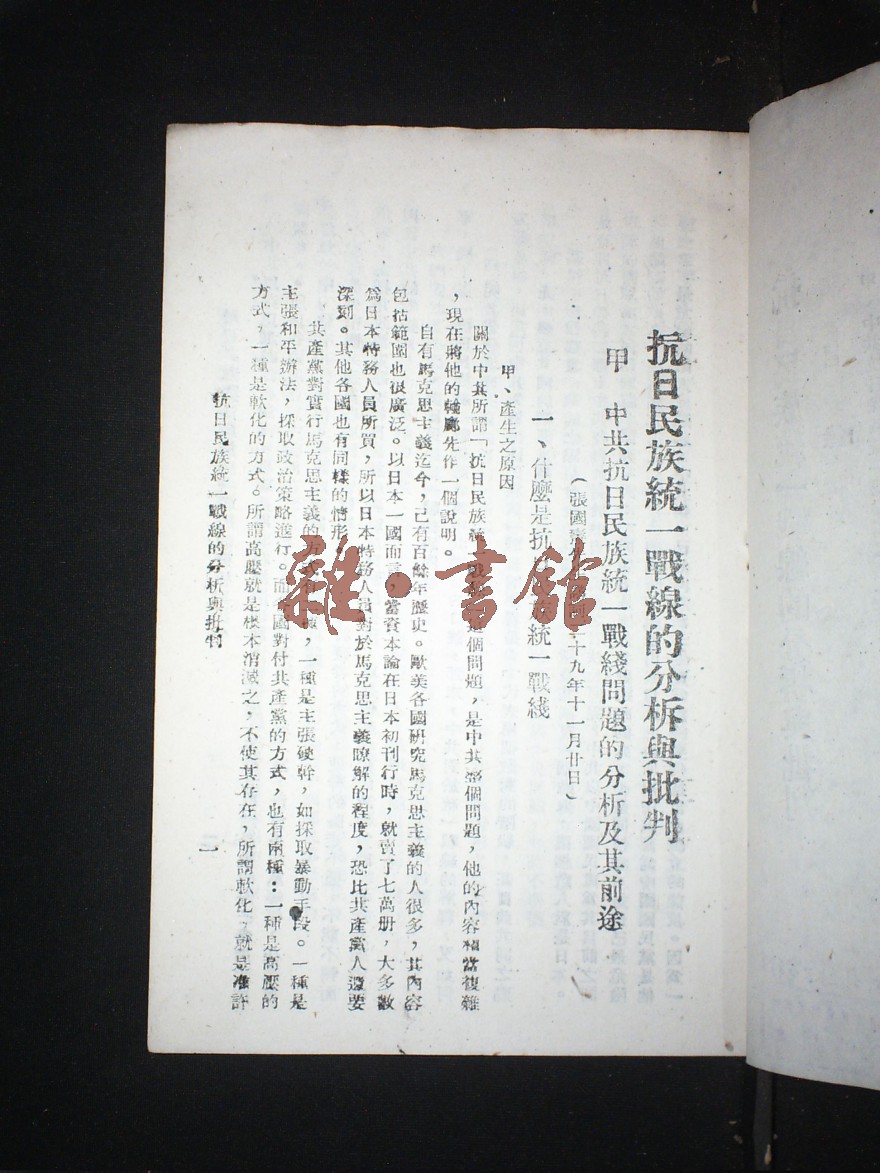 抗日民族統一戰線的分析與批判
甲　中共抗日民族統一戰綫問題的分析及其前途
（張國 十九年十一月廿日）
一、什麼是抗 統一戰綫
甲、產生之原因
關於中共所謂「抗日民族統 這個問題，是中共整個問題，他的內容相當複雜
，現在將他的輪廓先作一個說明。
自有馬克思主義迄今，已有百餘年歷史。歐美各國研究馬克思主義的人很多，其內容
包括範圍也很廣泛。以日本一國而言，當資本論在日本初刊行時，就賣了七萬册，大多數
爲日本特務人員所買，所以日本特務人員對於馬克思主義瞭解的程度，恐比共產黨人還要
深刻。其他各國也有同樣的情形。
共產黨對實行馬克思主義的方式 ，一種是主張硬幹，如採取暴動手段。一種是
主張和平辦法，採取政治策略進行。而 國對付共產黨的方式，也有兩種：一種是高壓的
方式，一種是軟化的方式。所謂高壓就是根本消滅之，不使其存在，所謂軟化，就是准許
抗日民族統一戰線的分析與批判
一
雜·書館